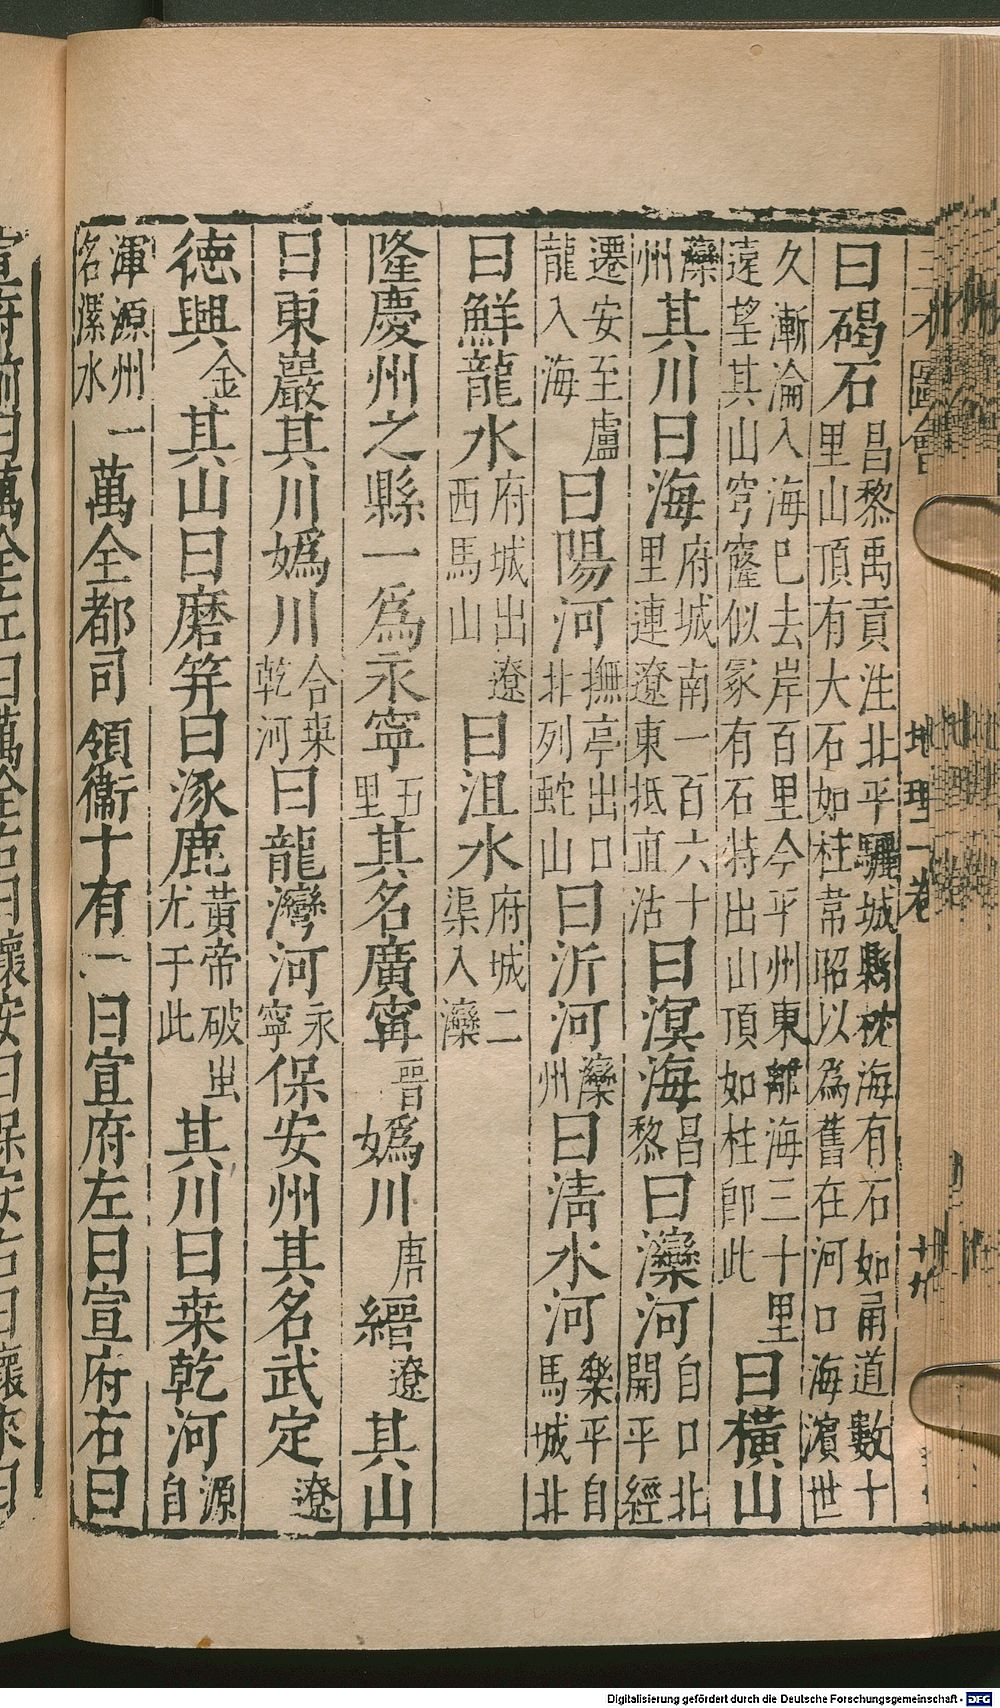 曰碣石昌黎禹貢注北平驪城縣枕海有石如甬道數十里山頂有大石如柱韋昭以為舊在河口海濱世
久漸淪入海已去岸百里今平州東離海三十里遠望其山穹窿似冢有石特出山頂如柱即此曰橫山
灤州其川曰海府城南一百六十里連遼東抵直沽曰溟海昌黎曰灤河自口北開平經
遷安至盧龍入海曰陽河撫亭出口北列蛇山曰沂河灤州曰清水河樂平自馬城北
曰鮮龍水府城出遼西馬山曰沮水府城二渠入灤
隆慶州之縣一為永寧五里其名廣甯晉媯川唐縉遼其山
曰東巖其川媯川合桒乾河曰龍灣河永寧保安州其名武定遼
德興金其山曰磨笄曰涿鹿黃帝破蚩尤于此其川曰桒乾河源自
渾源州一名漯水萬全都司領衞十有一曰宣府左曰宣府右曰
三才圖會
地理一卷
十九
Digitalisierung gefördert durch die Deutsche Forschungsgemeinschaft - DFG